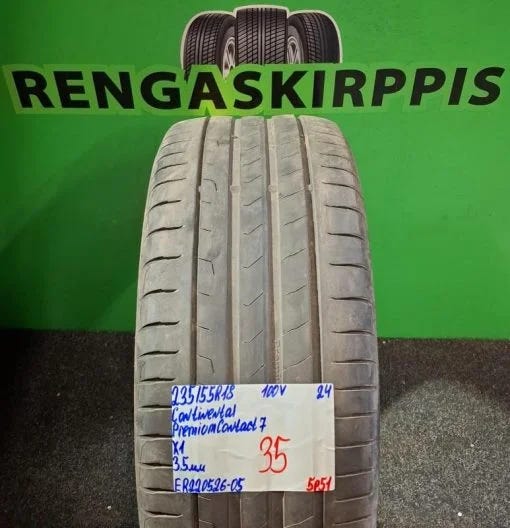 RENGASKIRPPIS
235/55R18 100V 24
Continental
PremiumContact 7
X1
3.5mm 35
ER220526-05 5P51